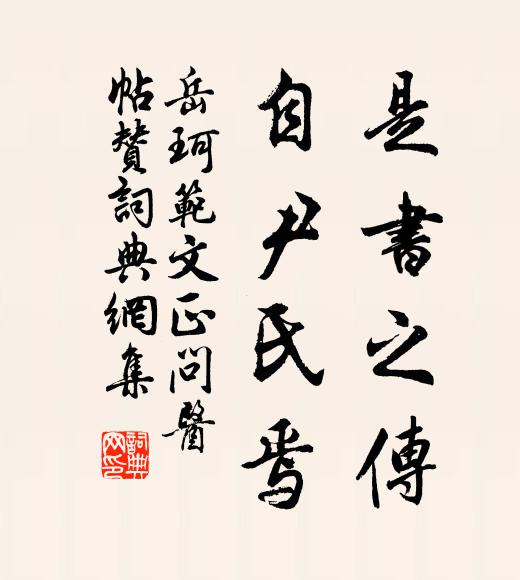 是書之傳
自尹氏焉
岳珂範文正問醫
帖贊詞典網集
詞典網印